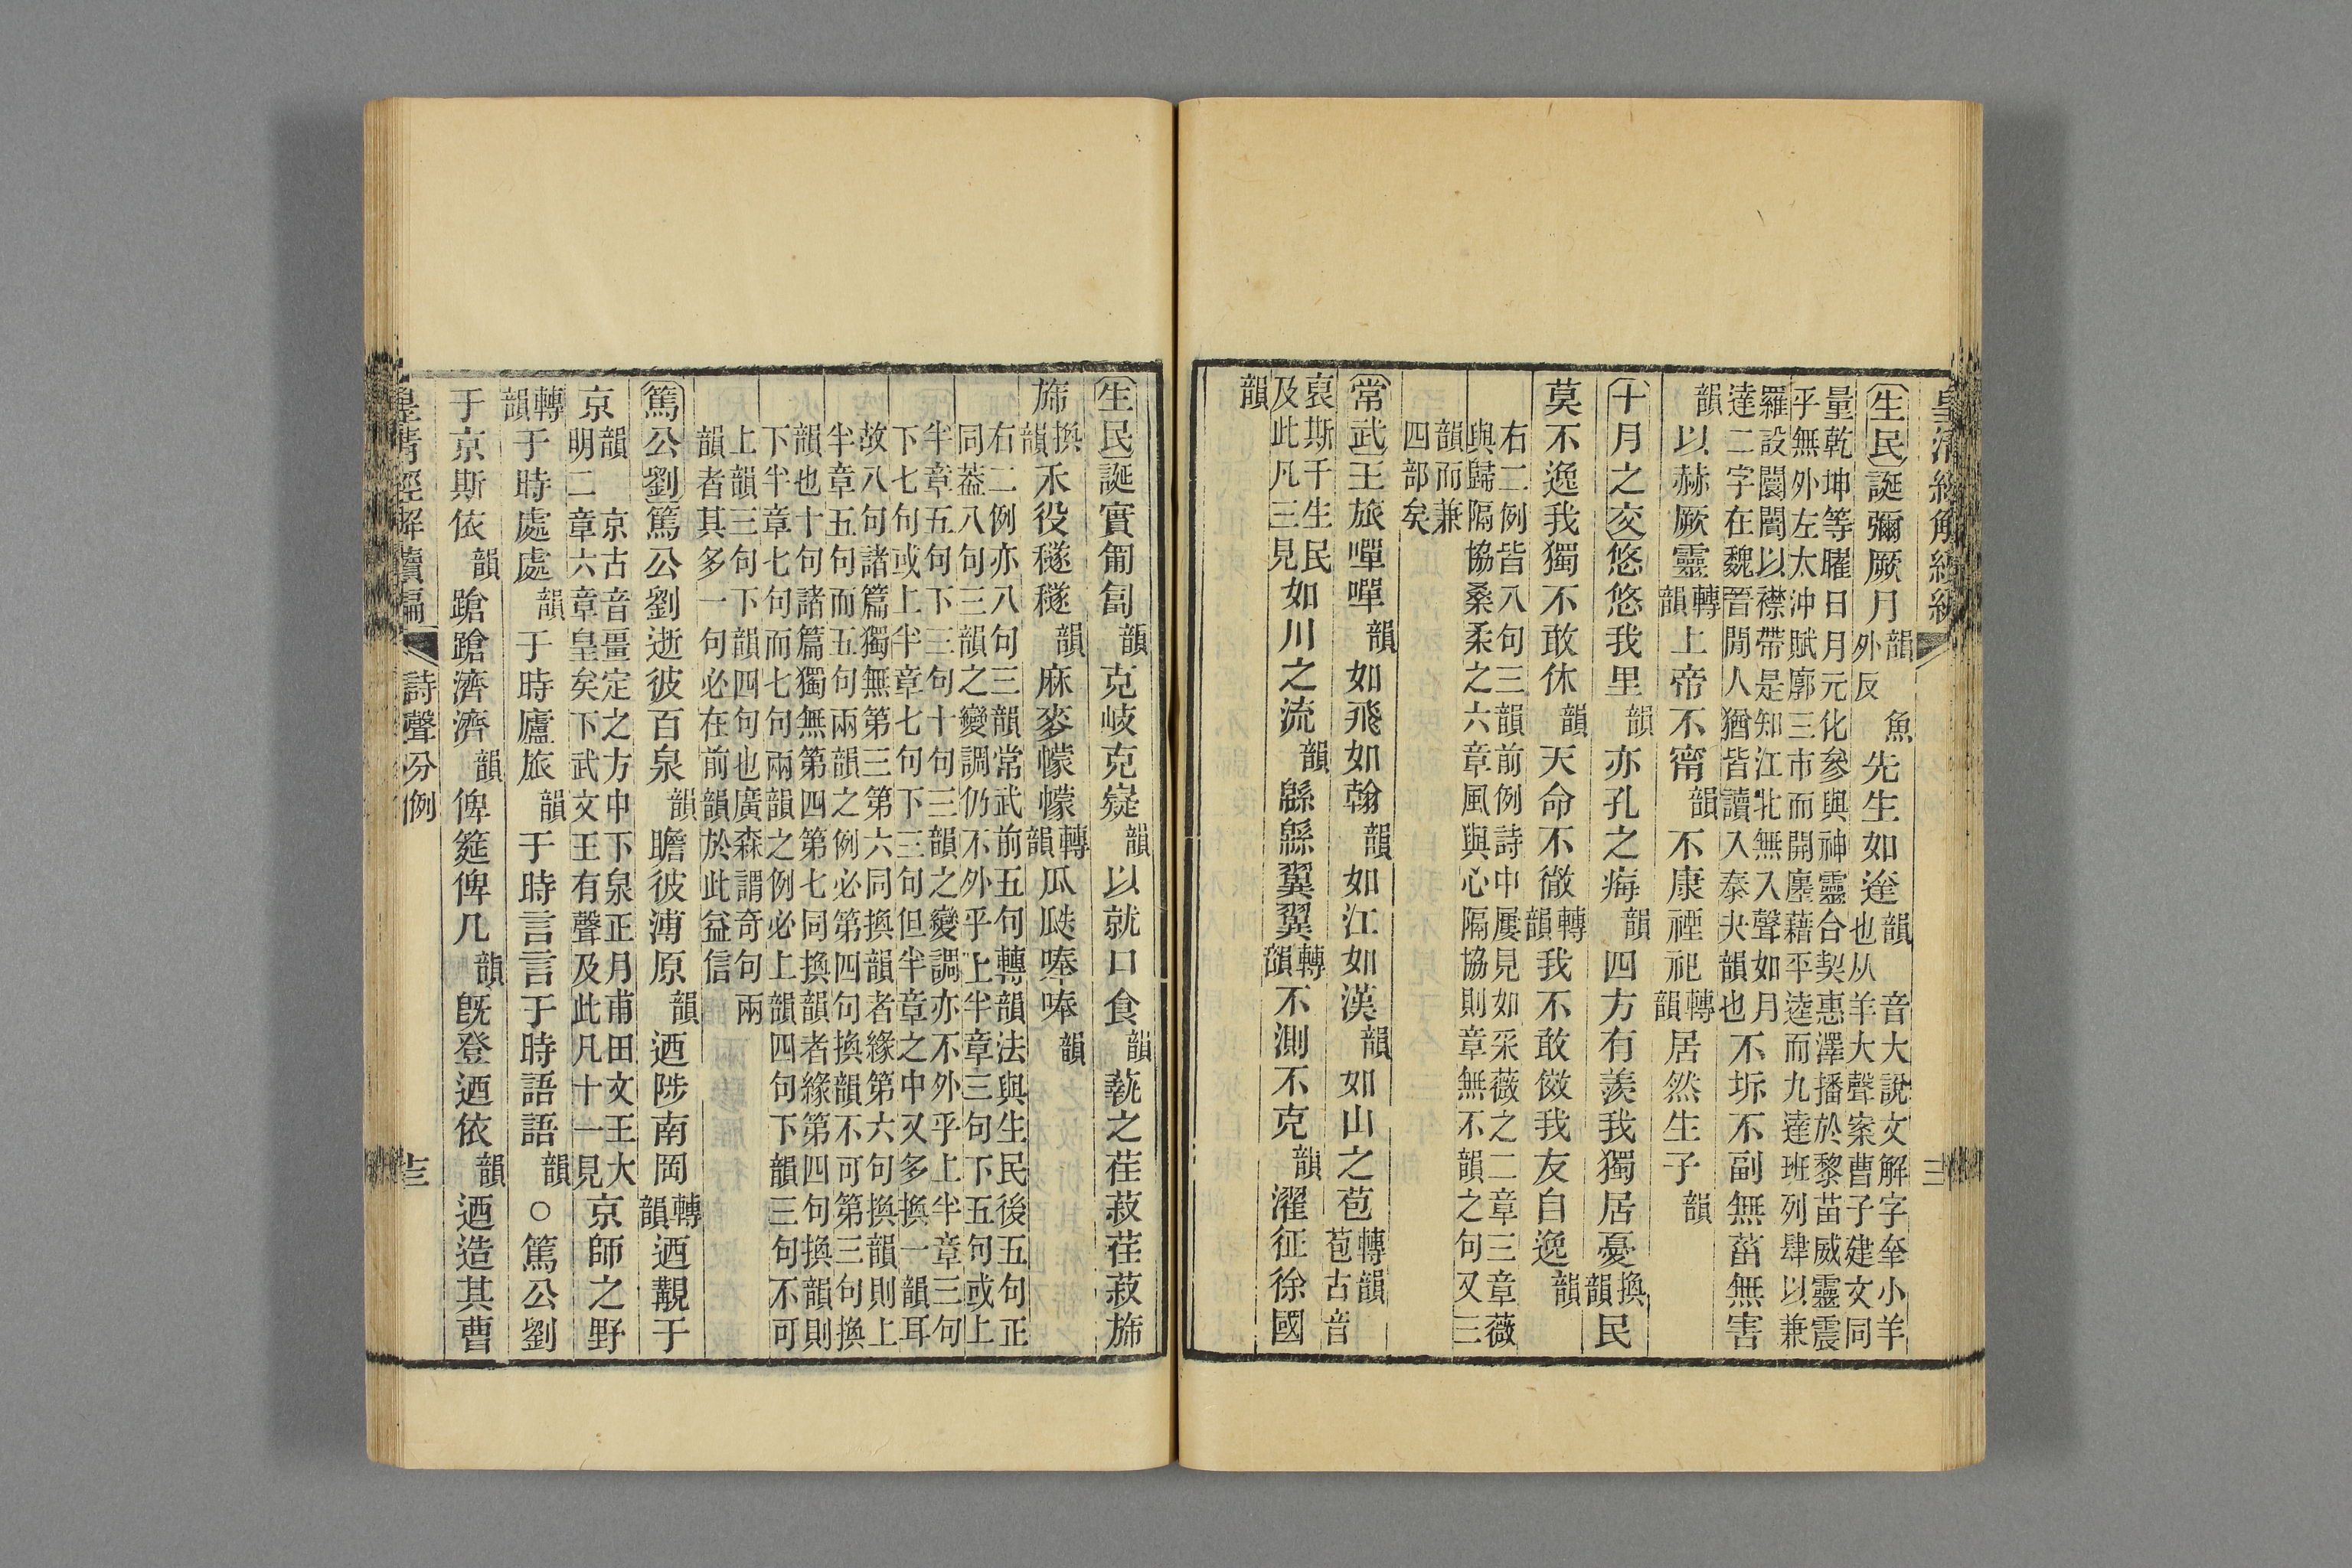 皇清經解續編
三
生民誕彌厥月韻魚
外反先生如達韻音大說文解字羍小羊
也从羊大聲案曹子建文同
量乾坤等曜日月元化參與神靈合契惠澤播於黎苗威靈震
乎無外左太沖賦廓三市而開廛藉平逵而九達班列肆以兼
羅設闤闠以襟帶是知江北無入聲如月
達二字在魏晉閒人猶皆讀入泰夬韻也不坼不副無菑無害
韻以赫厥靈轉韻上帝不甯韻不康禋祀轉韻居然生子韻
十月之交悠悠我里韻亦孔之痗韻四方有羨我獨居憂換韻民
莫不逸我獨不敢休韻天命不徹轉韻我不敢傚我友自逸韻
右二例皆八句三韻前例詩中屢見如采薇之二章三章薇
與歸隔協桑柔之六章風與心隔協則章無不韻之句又三
韻而兼
四部矣
常武王旅嘽嘽韻如飛如翰韻如江如漢韻如山之苞轉韻
苞古音
裒斯干生民
及此凡三見如川之流韻緜緜翼翼轉韻不測不克韻濯征徐國
韻
生民誕實匍匐韻克岐克嶷韻以就口食韻蓺之荏菽荏菽旆
旆換韻禾役穟穟韻麻麥幪幪轉韻瓜瓞唪唪韻
右二例亦八句三韻常武前五句轉韻法與生民後五句正
同葢八句三韻之變調仍不外乎上半章三句下五句或上
半章五句下三句十句三韻之變調亦不外乎上半章三句
下七句或上半章七句下三句但半章之中又多換一韻耳
故八句諸篇獨無第三第六同換韻者緣第六句換韻則上
半章五句而五句兩韻之例必第四句換韻不可第三句換
韻也十句諸篇獨無第四第七同換韻者緣第四句換韻則
下半章七句而七句兩韻之例必上韻四句下韻三句不可
上韻三句下韻四句也廣森謂奇句兩
韻者其多一句必在前韻於此益信
篤公劉篤公劉逝彼百泉韻瞻彼溥原韻迺陟南岡轉韻迺覯于
京韻京古音畺定之方中下泉正月甫田文王大
明二章六章皇矣下武文王有聲及此凡十一見京師之野
轉韻于時處處韻于時廬旅韻于時言言于時語語韻○篤公劉
于京斯依韻蹌蹌濟濟韻俾筵俾几韻旣登迺依韻迺造其曹
皇清經解續編
詩聲分例